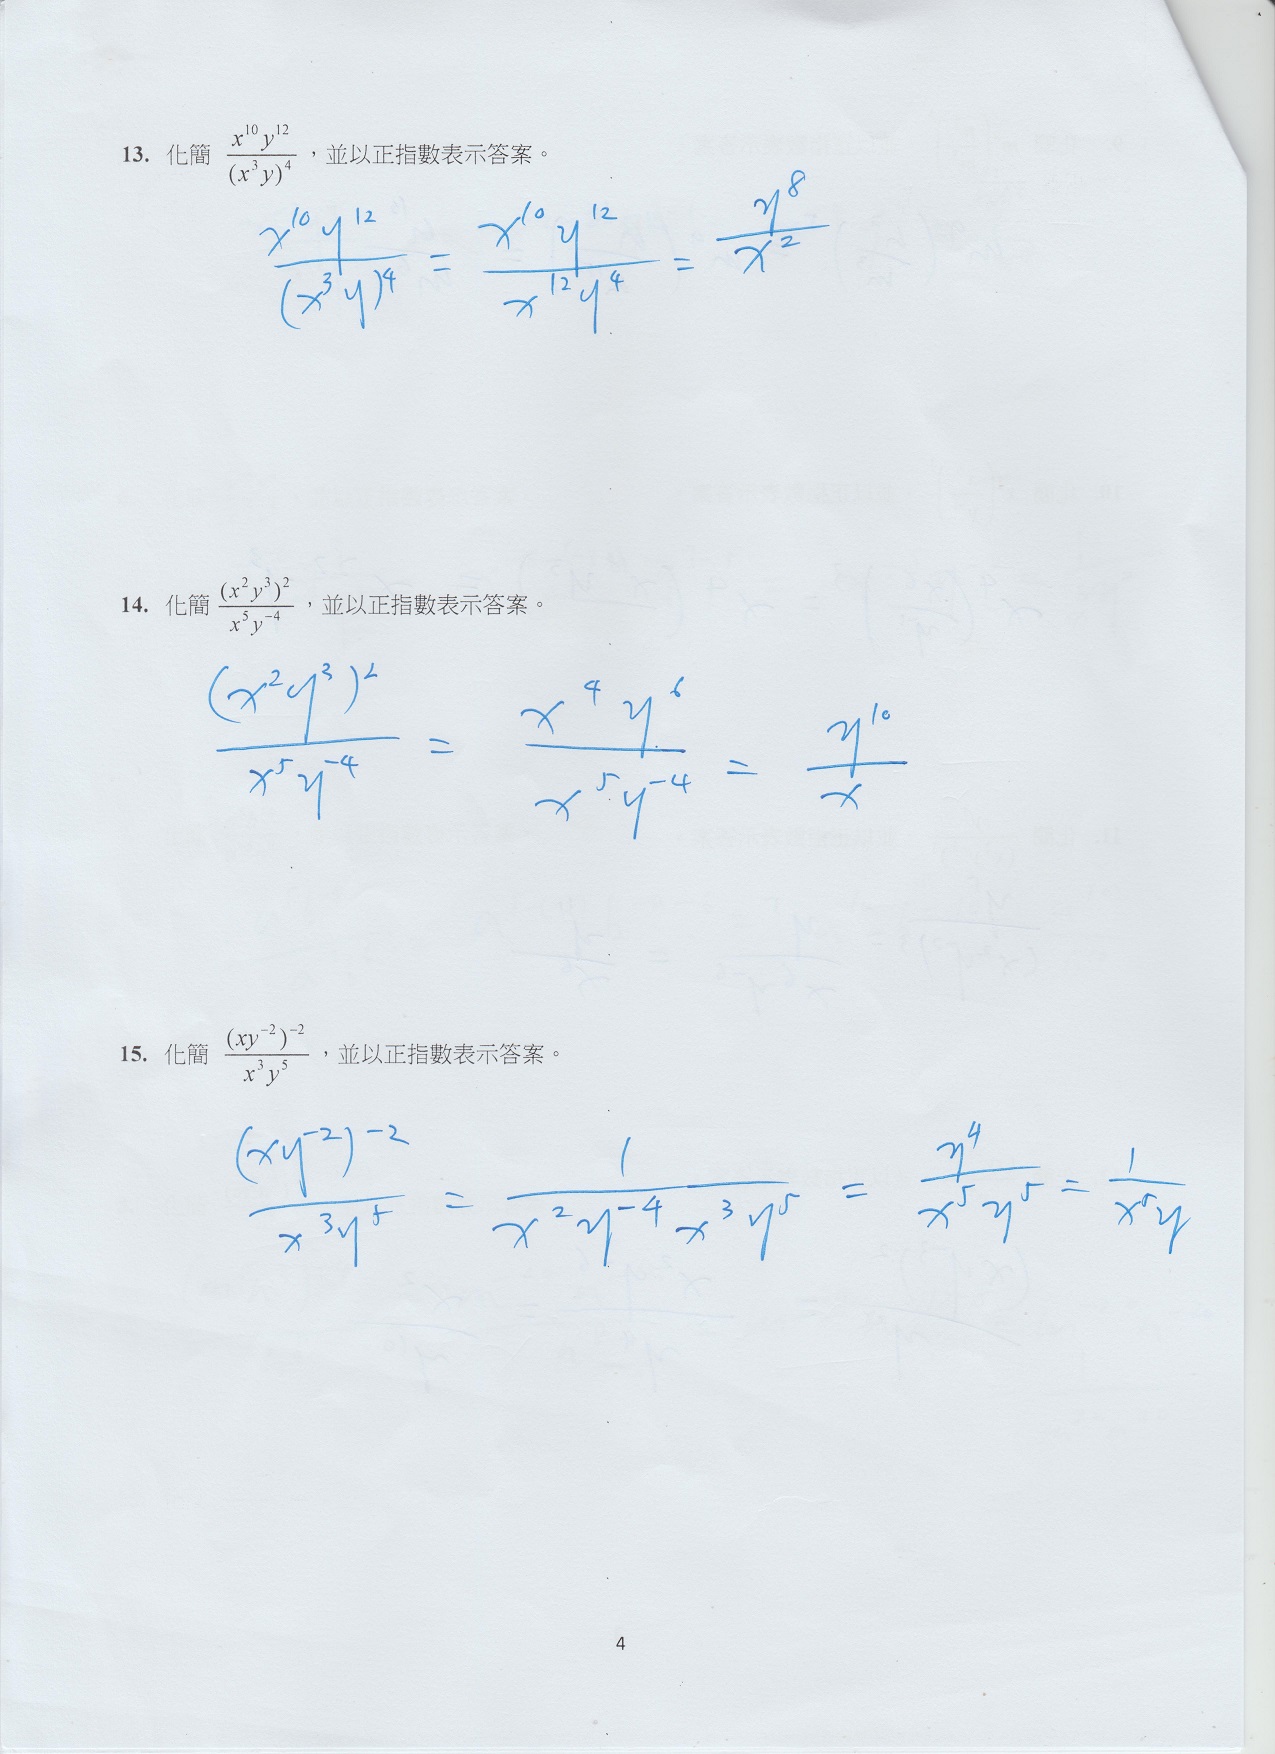 13. 化簡 $\frac{x^{10}y^{12}}{(x^3y)^4}$，並以正指數表示答案。
$\frac{x^{10}y^{12}}{(x^3y)^4} = \frac{x^{10}y^{12}}{x^{12}y^4} = \frac{y^8}{x^2}$
14. 化簡 $\frac{(x^2y^3)^2}{x^5y^{-4}}$，並以正指數表示答案。
$\frac{(x^2y^3)^2}{x^5y^{-4}} = \frac{x^4y^6}{x^5y^{-4}} = \frac{y^{10}}{x}$
15. 化簡 $\frac{(xy^{-2})^{-2}}{x^3y^5}$，並以正指數表示答案。
$\frac{(xy^{-2})^{-2}}{x^3y^5} = \frac{1}{x^2y^{-4}x^3y^5} = \frac{y^4}{x^5y^5} = \frac{1}{x^5y}$
4